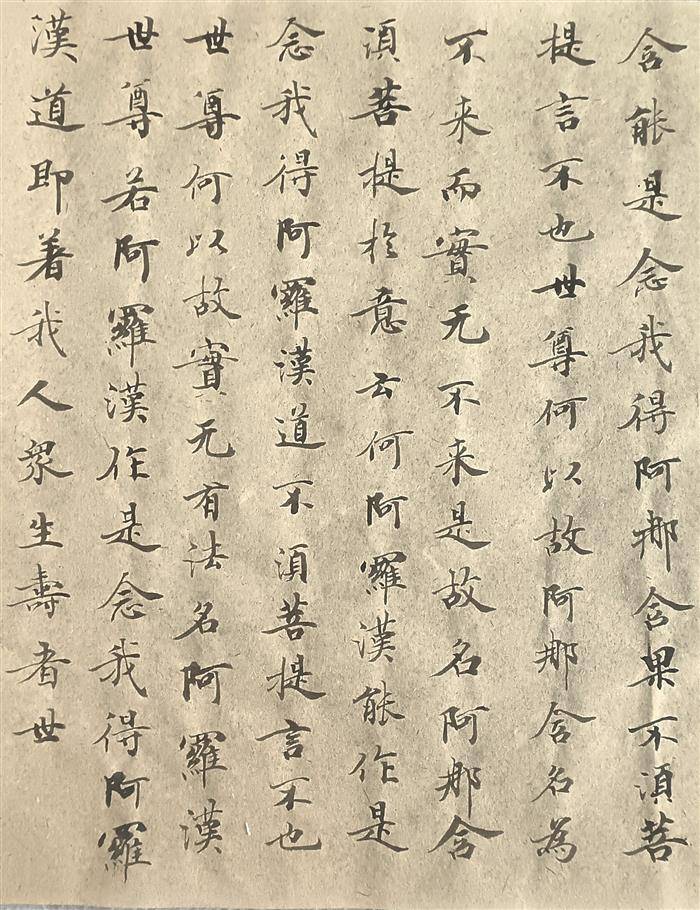 含能是念我得阿那含果不須菩
提言不也世尊何以故阿那含名為
不来而實无不来是故名阿那含
須菩提於意云何阿羅漢能作是
念我得阿羅漢道不須菩提言不也
世尊何以故實无有法名阿羅漢
世尊若阿羅漢作是念我得阿羅
漢道即著我人眾生壽者世